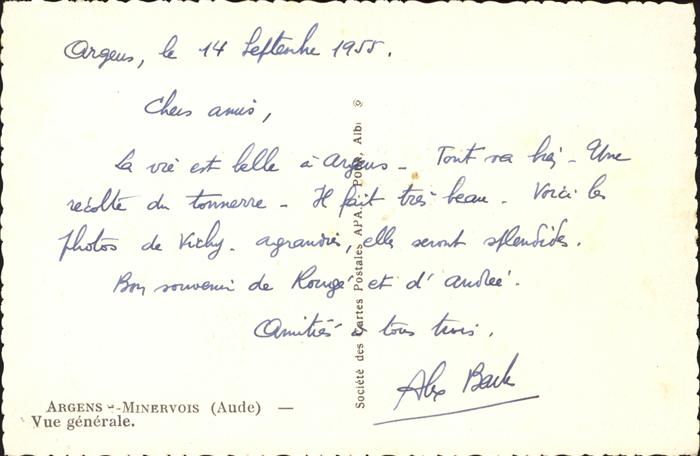 Argens, le 14 Septembre 1955.
Chers amis,
La vie est belle à Argens - Tout va bien - Une
récolte du tonnerre - Il fait très beau. Voici les
photos de Vichy. agrandies, elles seront splendides.
Bon souvenir de Rougé et d'Andrée.
Amitiés à tous trois.
Alex
ARGENS-MINERVOIS (Aude) —
Vue générale.
Société des Cartes Postales APA. POUX, Albi